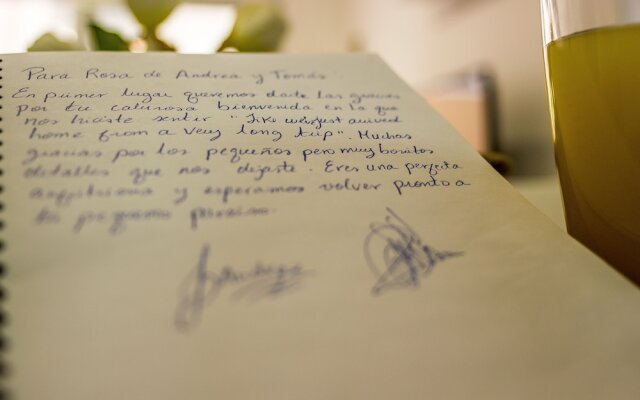 Para Rosa de Andrea y Tomás
En primer lugar queremos darte las gracias
por tu calurosa bienvenida en la que
nos hiciste sentir "like we just arrived
home from a very long trip". Muchas
gracias por los pequeños pero muy bonitos
detalles que nos dejaste. Eres una perfecta
anfitriona y esperamos volver pronto a
tu pequeño paraíso.